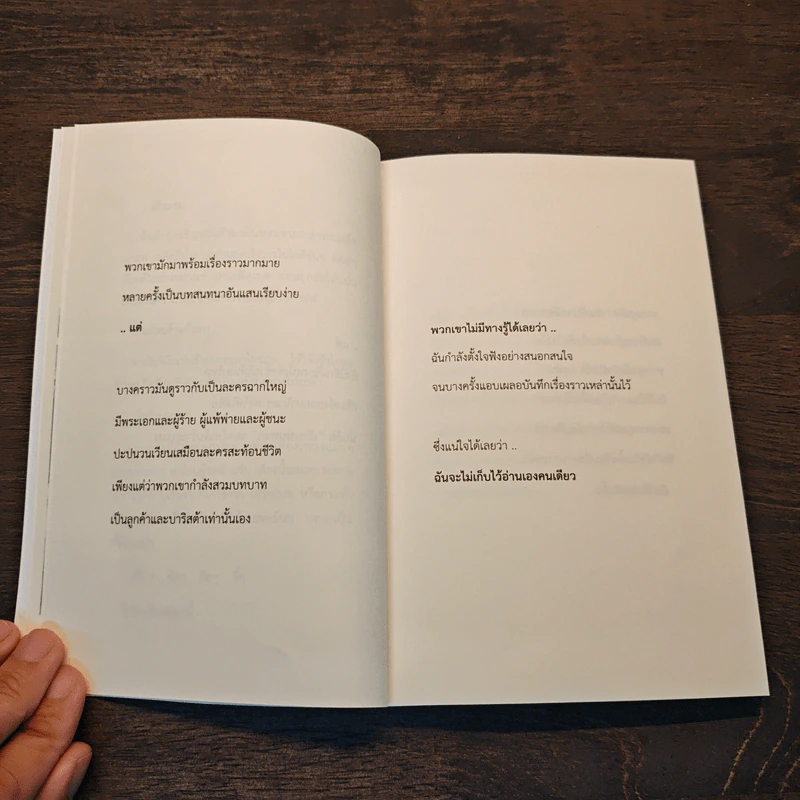 พวกเขามักมาพร้อมเรื่องราวมากมาย
หลายครั้งเป็นบทสนทนาอันแสนเรียบง่าย
.. แต่
บางคราวมันดูราวกับเป็นละครฉากใหญ่
มีพระเอกและผู้ร้าย ผู้แพ้พ่ายและผู้ชนะ
ปะปนวนเวียนเสมือนละครสะท้อนชีวิต
เพียงแต่ว่าพวกเขากำลังสวมบทบาท
เป็นลูกค้าและบาริสต้าเท่านั้นเอง
พวกเขาไม่มีทางรู้ได้เลยว่า ..
ฉันกำลังตั้งใจฟังอย่างสนอกสนใจ
จนบางครั้งแอบเผลอบันทึกเรื่องราวเหล่านั้นไว้
ซึ่งแน่ใจได้เลยว่า ..
ฉันจะไม่เก็บไว้อ่านเองคนเดียว